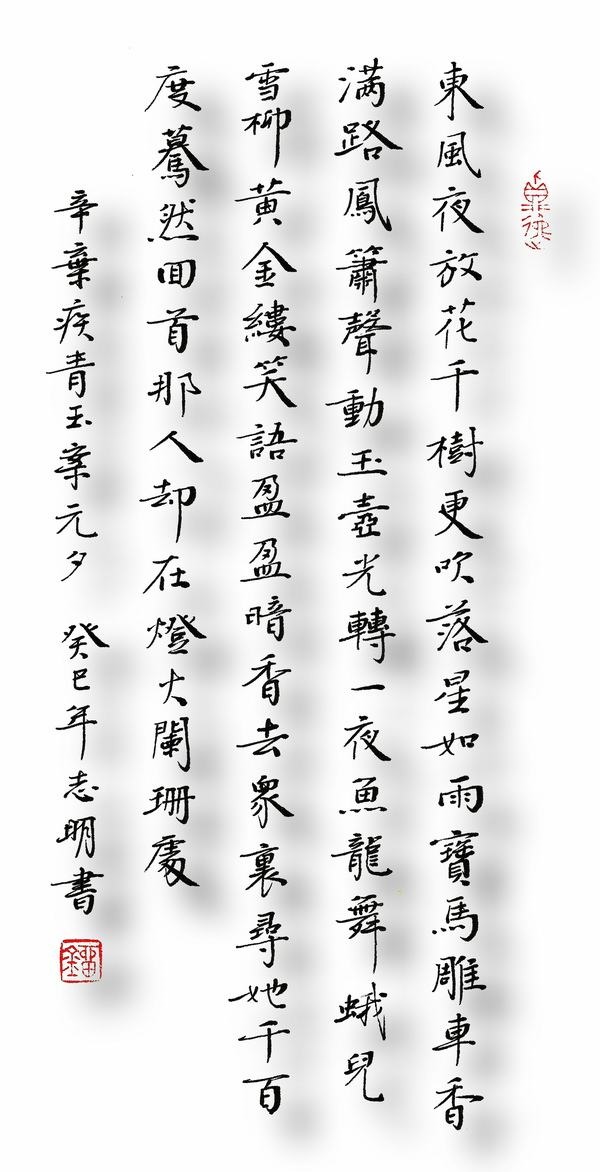 東風夜放花千樹更吹落星如雨寶馬雕車香
滿路鳳簫聲動玉壺光轉一夜魚龍舞蛾兒
雪柳黃金縷笑語盈盈暗香去衆裏尋她千百
度驀然回首那人却在燈火闌珊處
辛棄疾青玉案元夕 癸巳年志明書